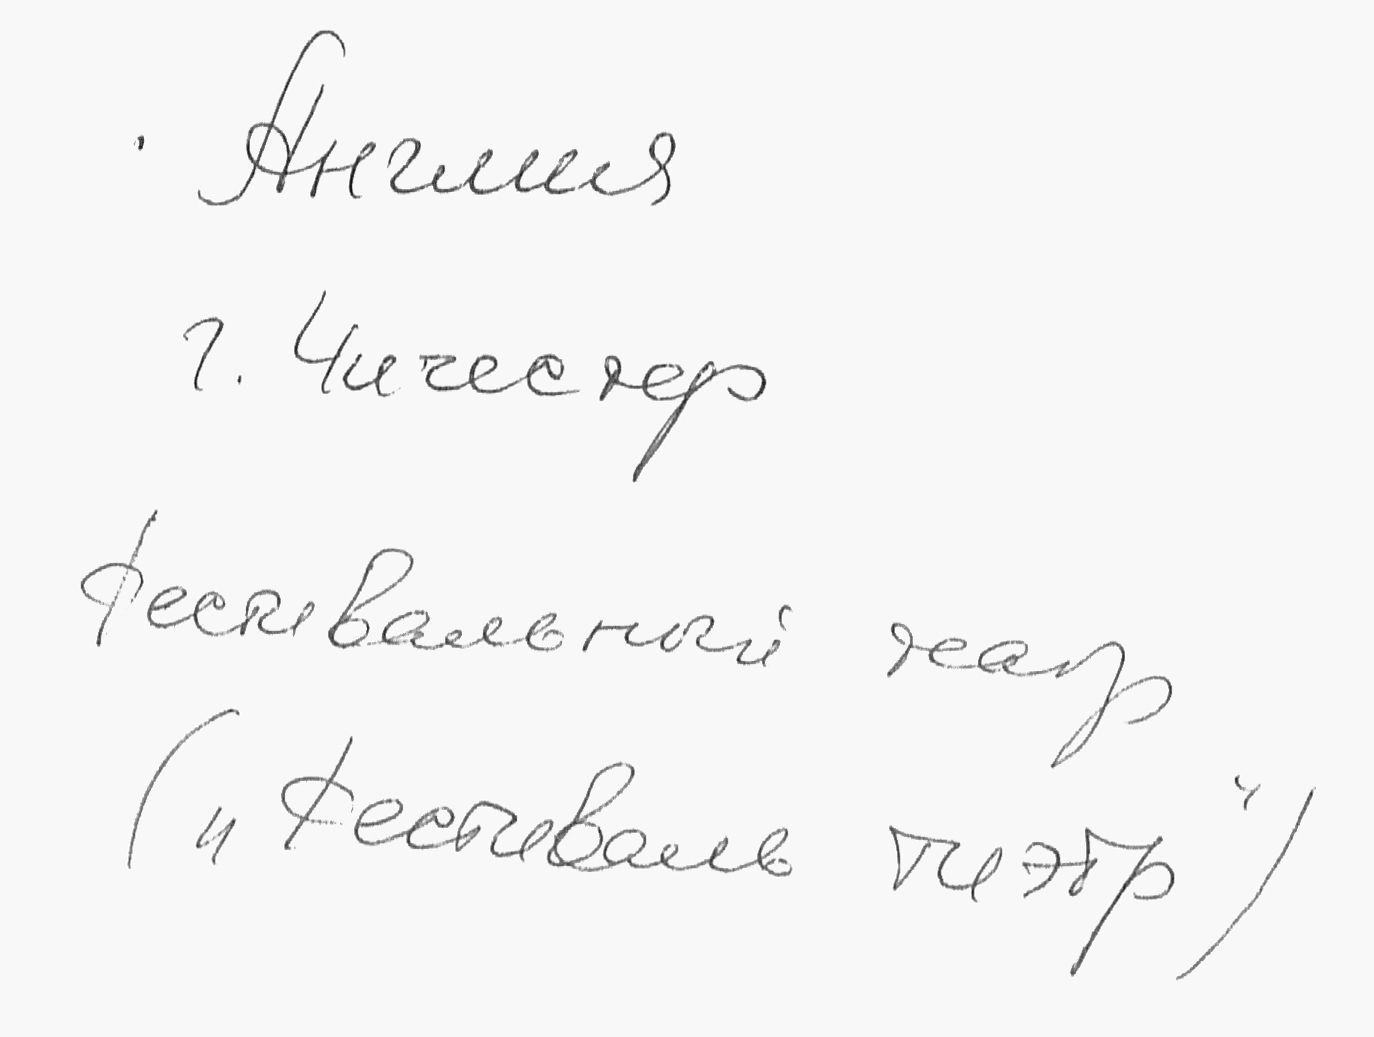 Англия
г. Чичестер
Фестивальный театр
(„Фестиваль тиэтр")